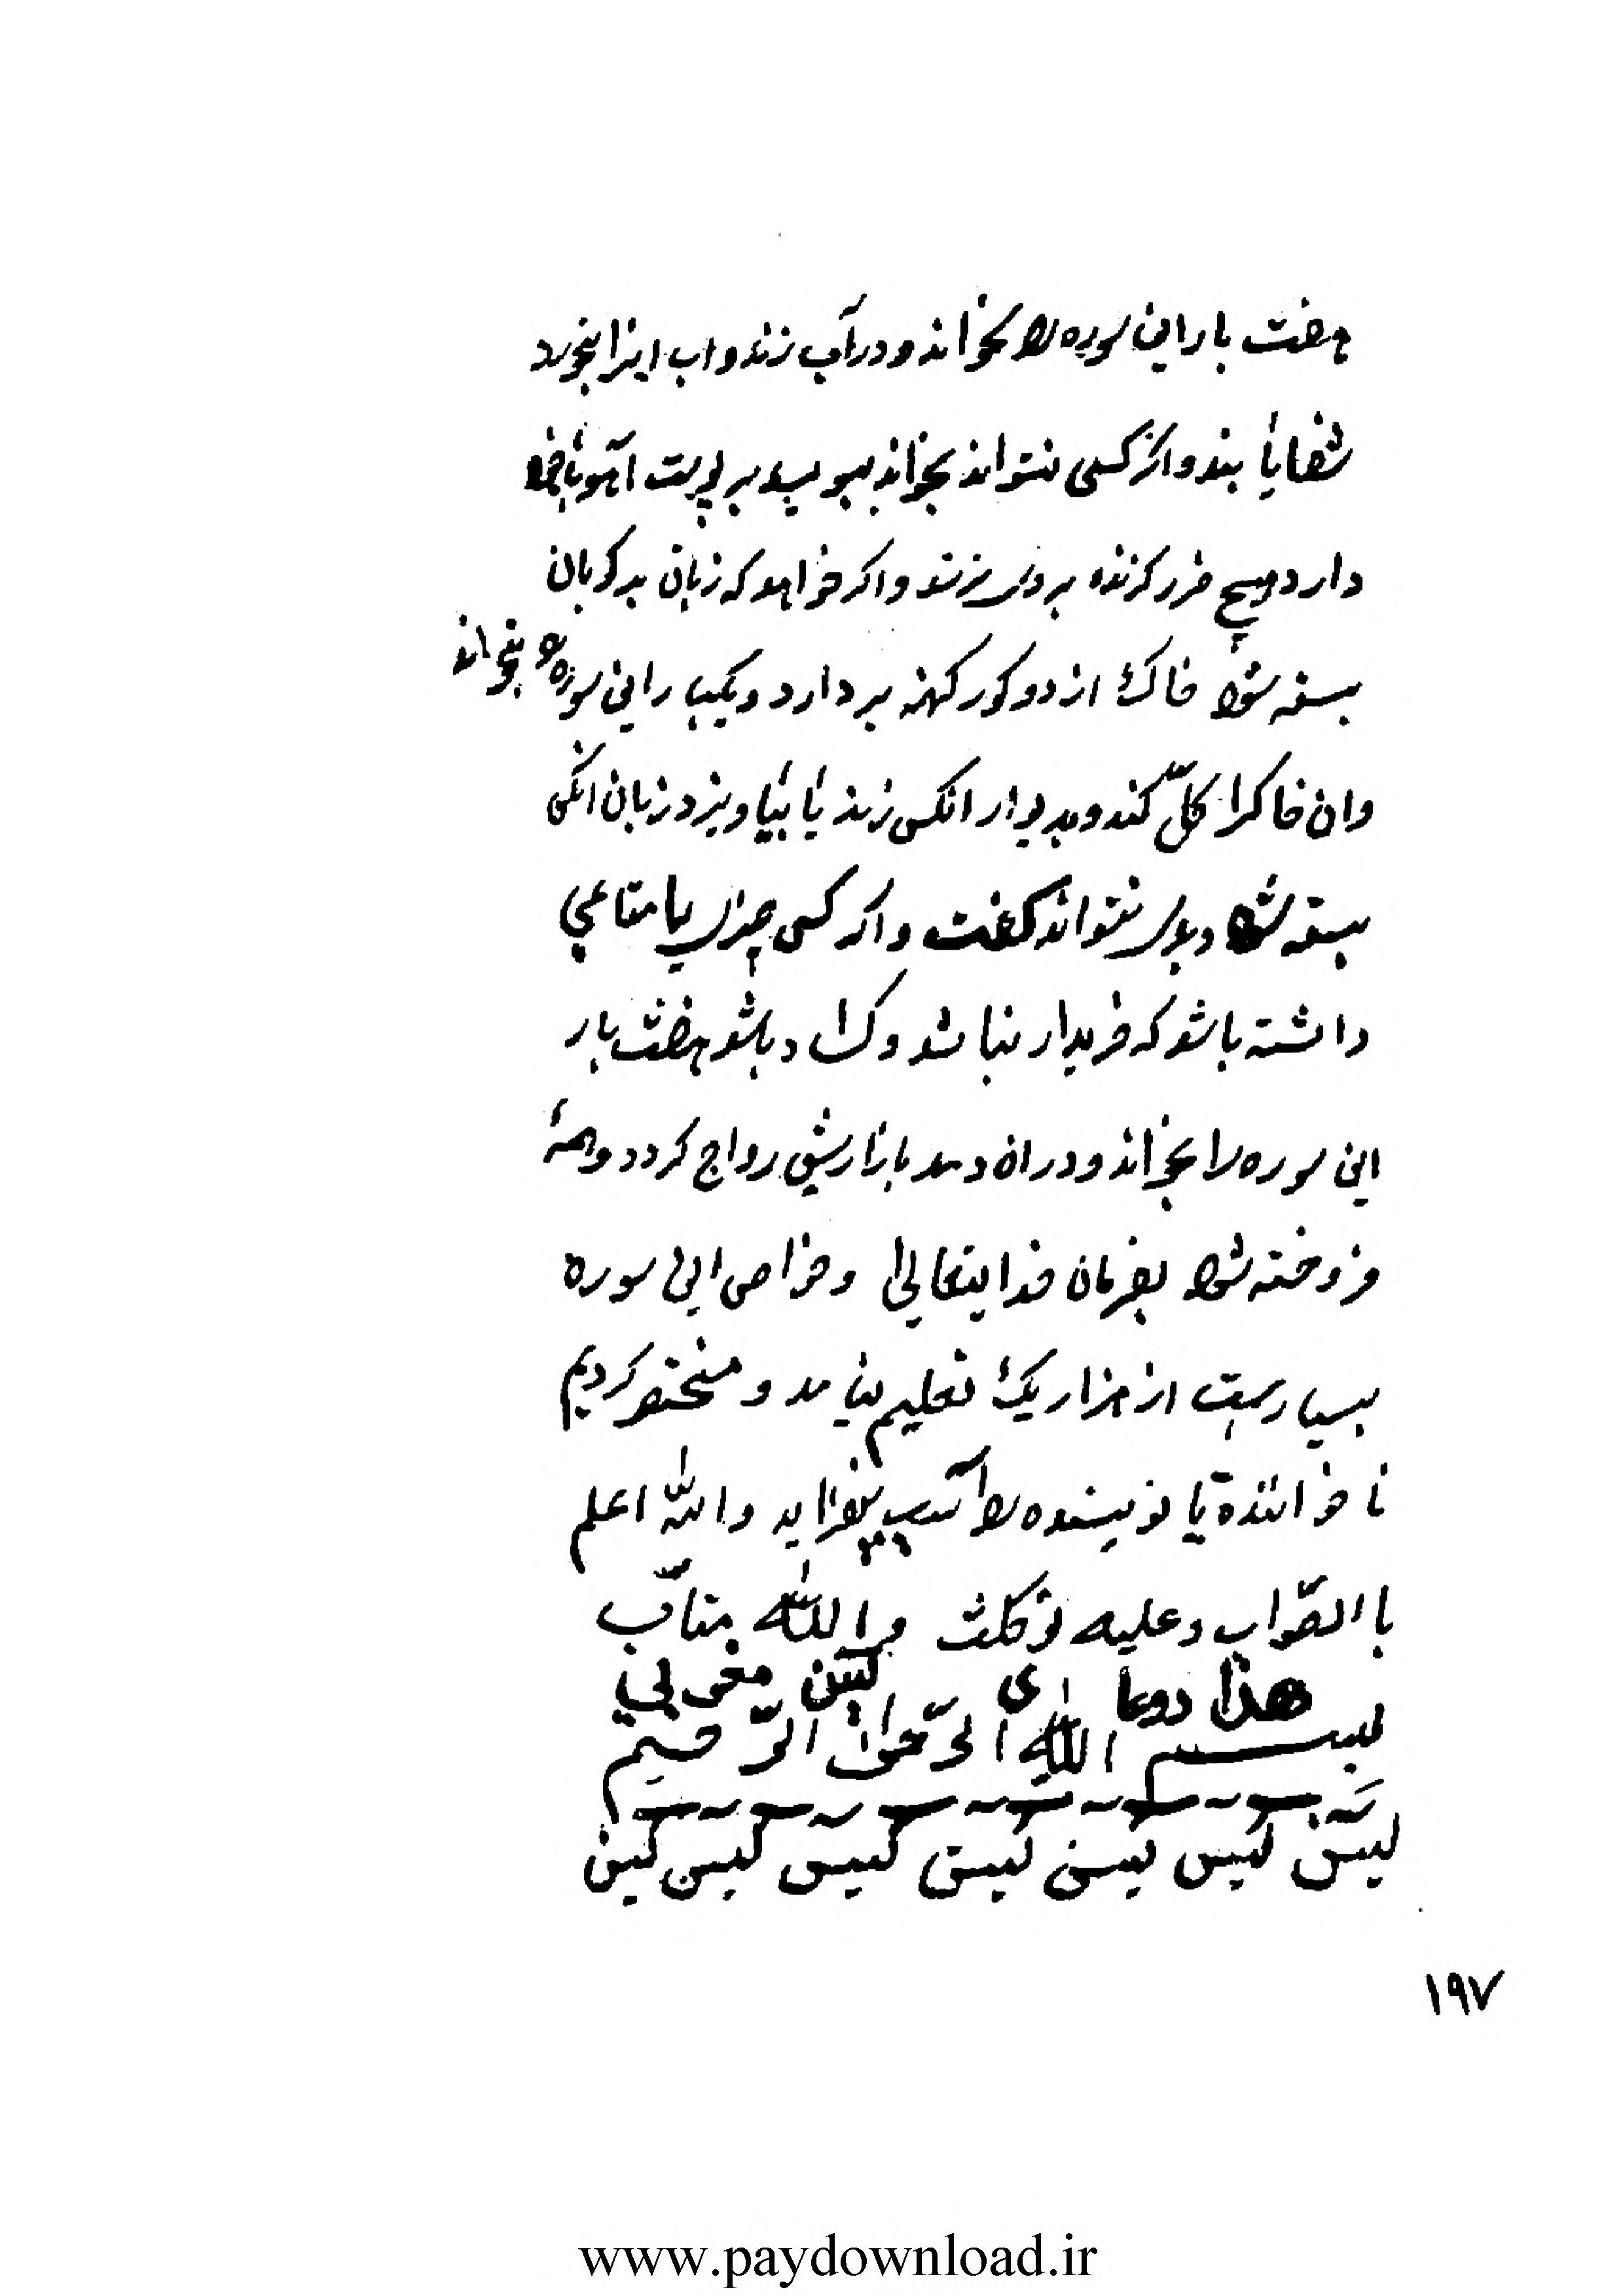 هفت بار این سوره را بخواند و در آب زند و اب اینرا بخورد
شفا یابند و اگر کسی نتواند بخواند بنویسد بر پوست آهو با خود
دارد هیچ ضرر کزنده بر وی نرسد و اکر خواهد که زبان بدکویان
بسته شود خاک از دو کور کهنه بردارد و یکبار این سوره بخواند
وان خاکرا کل کند و بدیوار انکس زند یا بیاویزد زبان انکس
بسته شود و بدی نتواند کفت و اکر کسی چیزی یا متاعی
داشته باشد که خریدار نباشد و کساد باشد هفت بار
این سوره را بخواند و در ان دمد بازارش رواج کردد و همه
فروخته شود بفرمان خدایتعالی و خواص این سوره
بسیار است از هزار یک تعلیم نیامد و مختصر کردیم
تا خواننده یا نویسنده را آسیب نفزاید والله اعلم
باالصّواب و علیه توکلت والله متاب
هذا دوعا ی یس مغربی
بسم الله الرّحمن الرّحیم
یس یس یس یس یس یس یس
۱۹۷
www.paydownload.ir